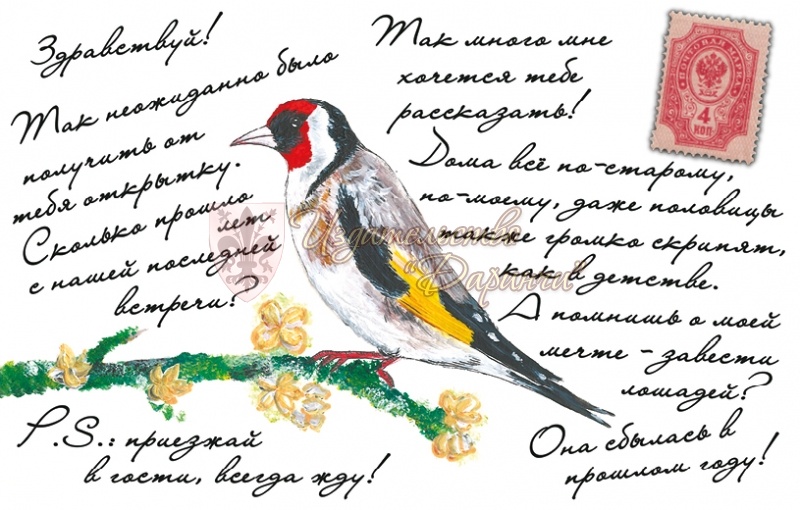 Здравствуй!
Так неожиданно было
получить от
тебя открытку.
Сколько прошло
лет
с нашей последней
встречи?
Так много мне
хочется тебе
рассказать!
Дома всё по-старому,
по-моему, даже половицы
также громко скрипят,
как в детстве.
А помнишь о моей
мечте - завести
лошадей?
Она сбылась в
прошлом году!
P.S.: приезжай
в гости, всегда жду!
ПОЧТОВАЯ МАРКА
4
КОП.
Издательство
"Даринчи"